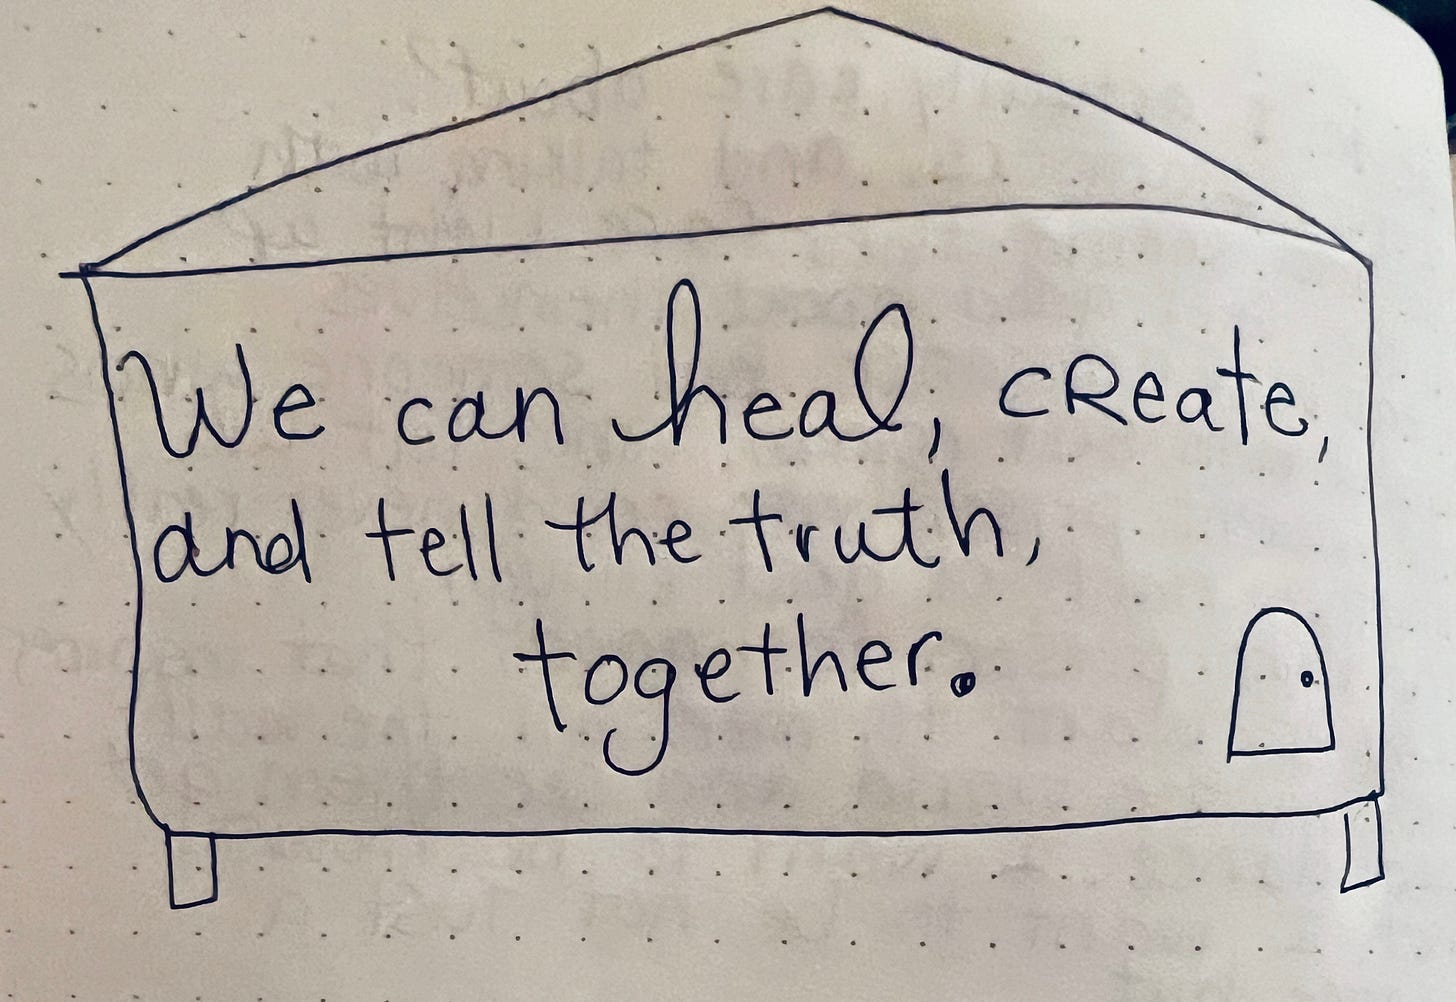 We can heal, cReate,
and tell the truth,
together.